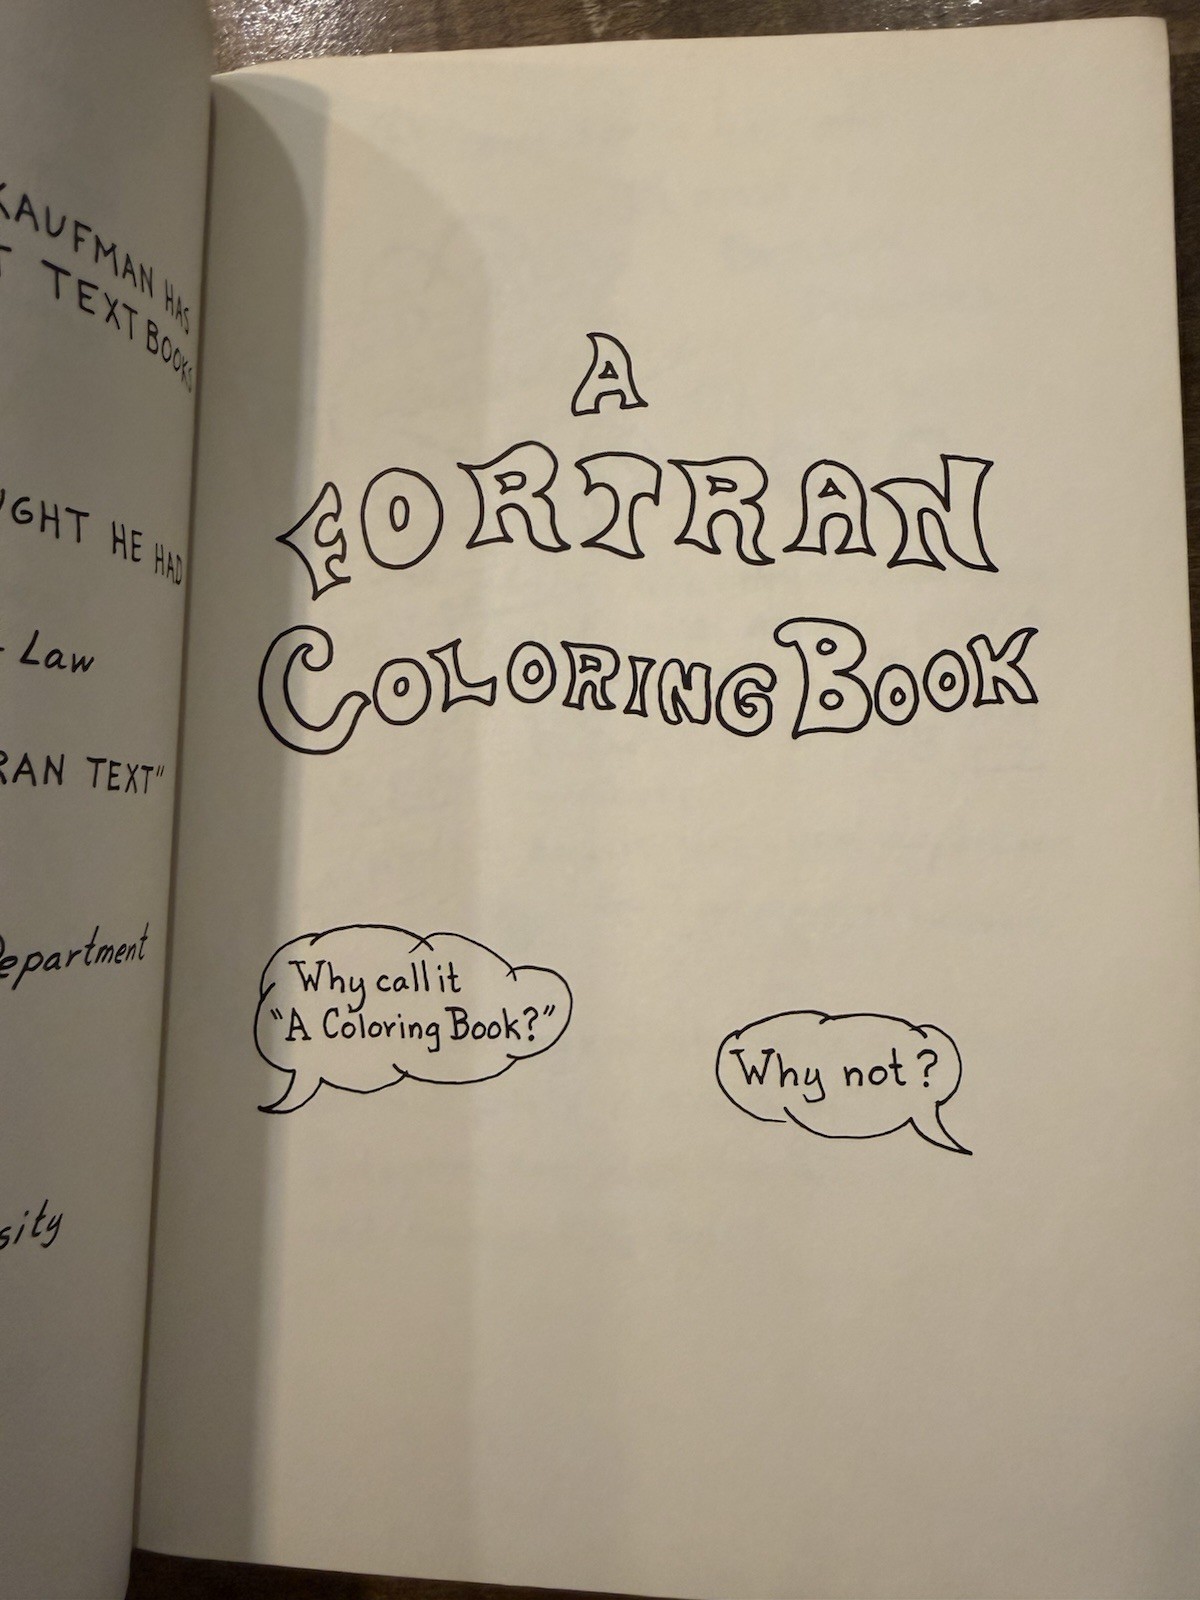 KAUFMAN HAS
TEXT BOOKS
HE HAD
Law
TEXT"
sity
A
FORTRAN
COLORING BOOK
Why call it
"A Coloring Book?"
Why not?